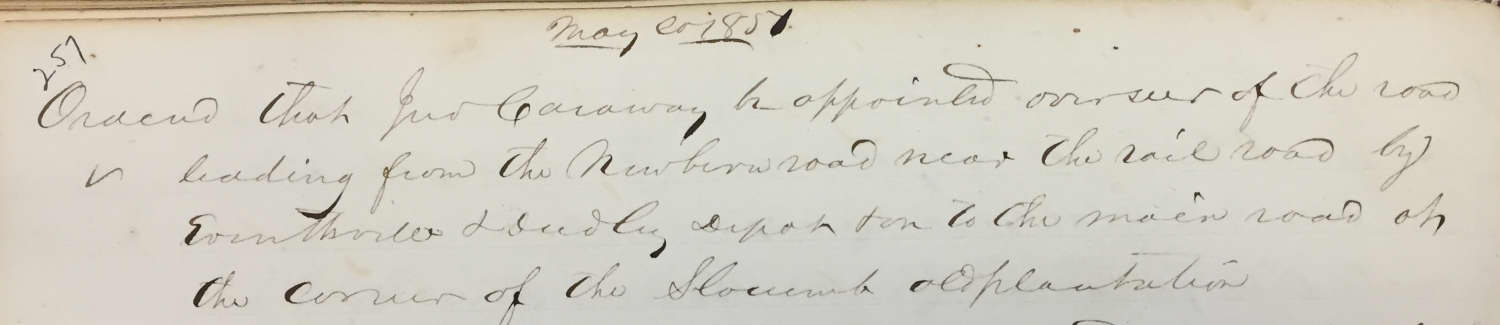 May Co 1851.
251
Ordered that Jno Caraway be appointed overseer of the road
leading from the Newbern road near the rail road by
Everittsville & Dudley Depot & on to the main road at
the corner of the Slocumb old plantation